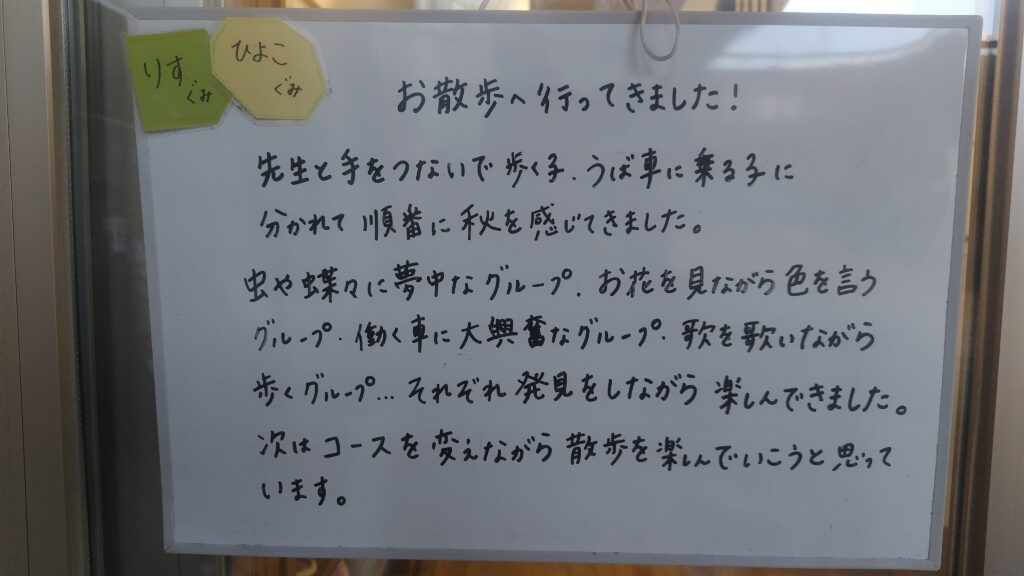 りす
ぐみ
ひよこ
ぐみ
お散歩へ行ってきました!
先生と手をつないで歩く子、うば車に乗る子に
分かれて順番に秋を感じてきました。
虫や蝶々に夢中なグループ、お花を見ながら色を言う
グループ、働く車に大興奮なグループ、歌を歌いながら
歩くグループ…それぞれ発見をしながら楽しんできました。
次はコースを変えながら散歩を楽しんでいこうと思って
います。